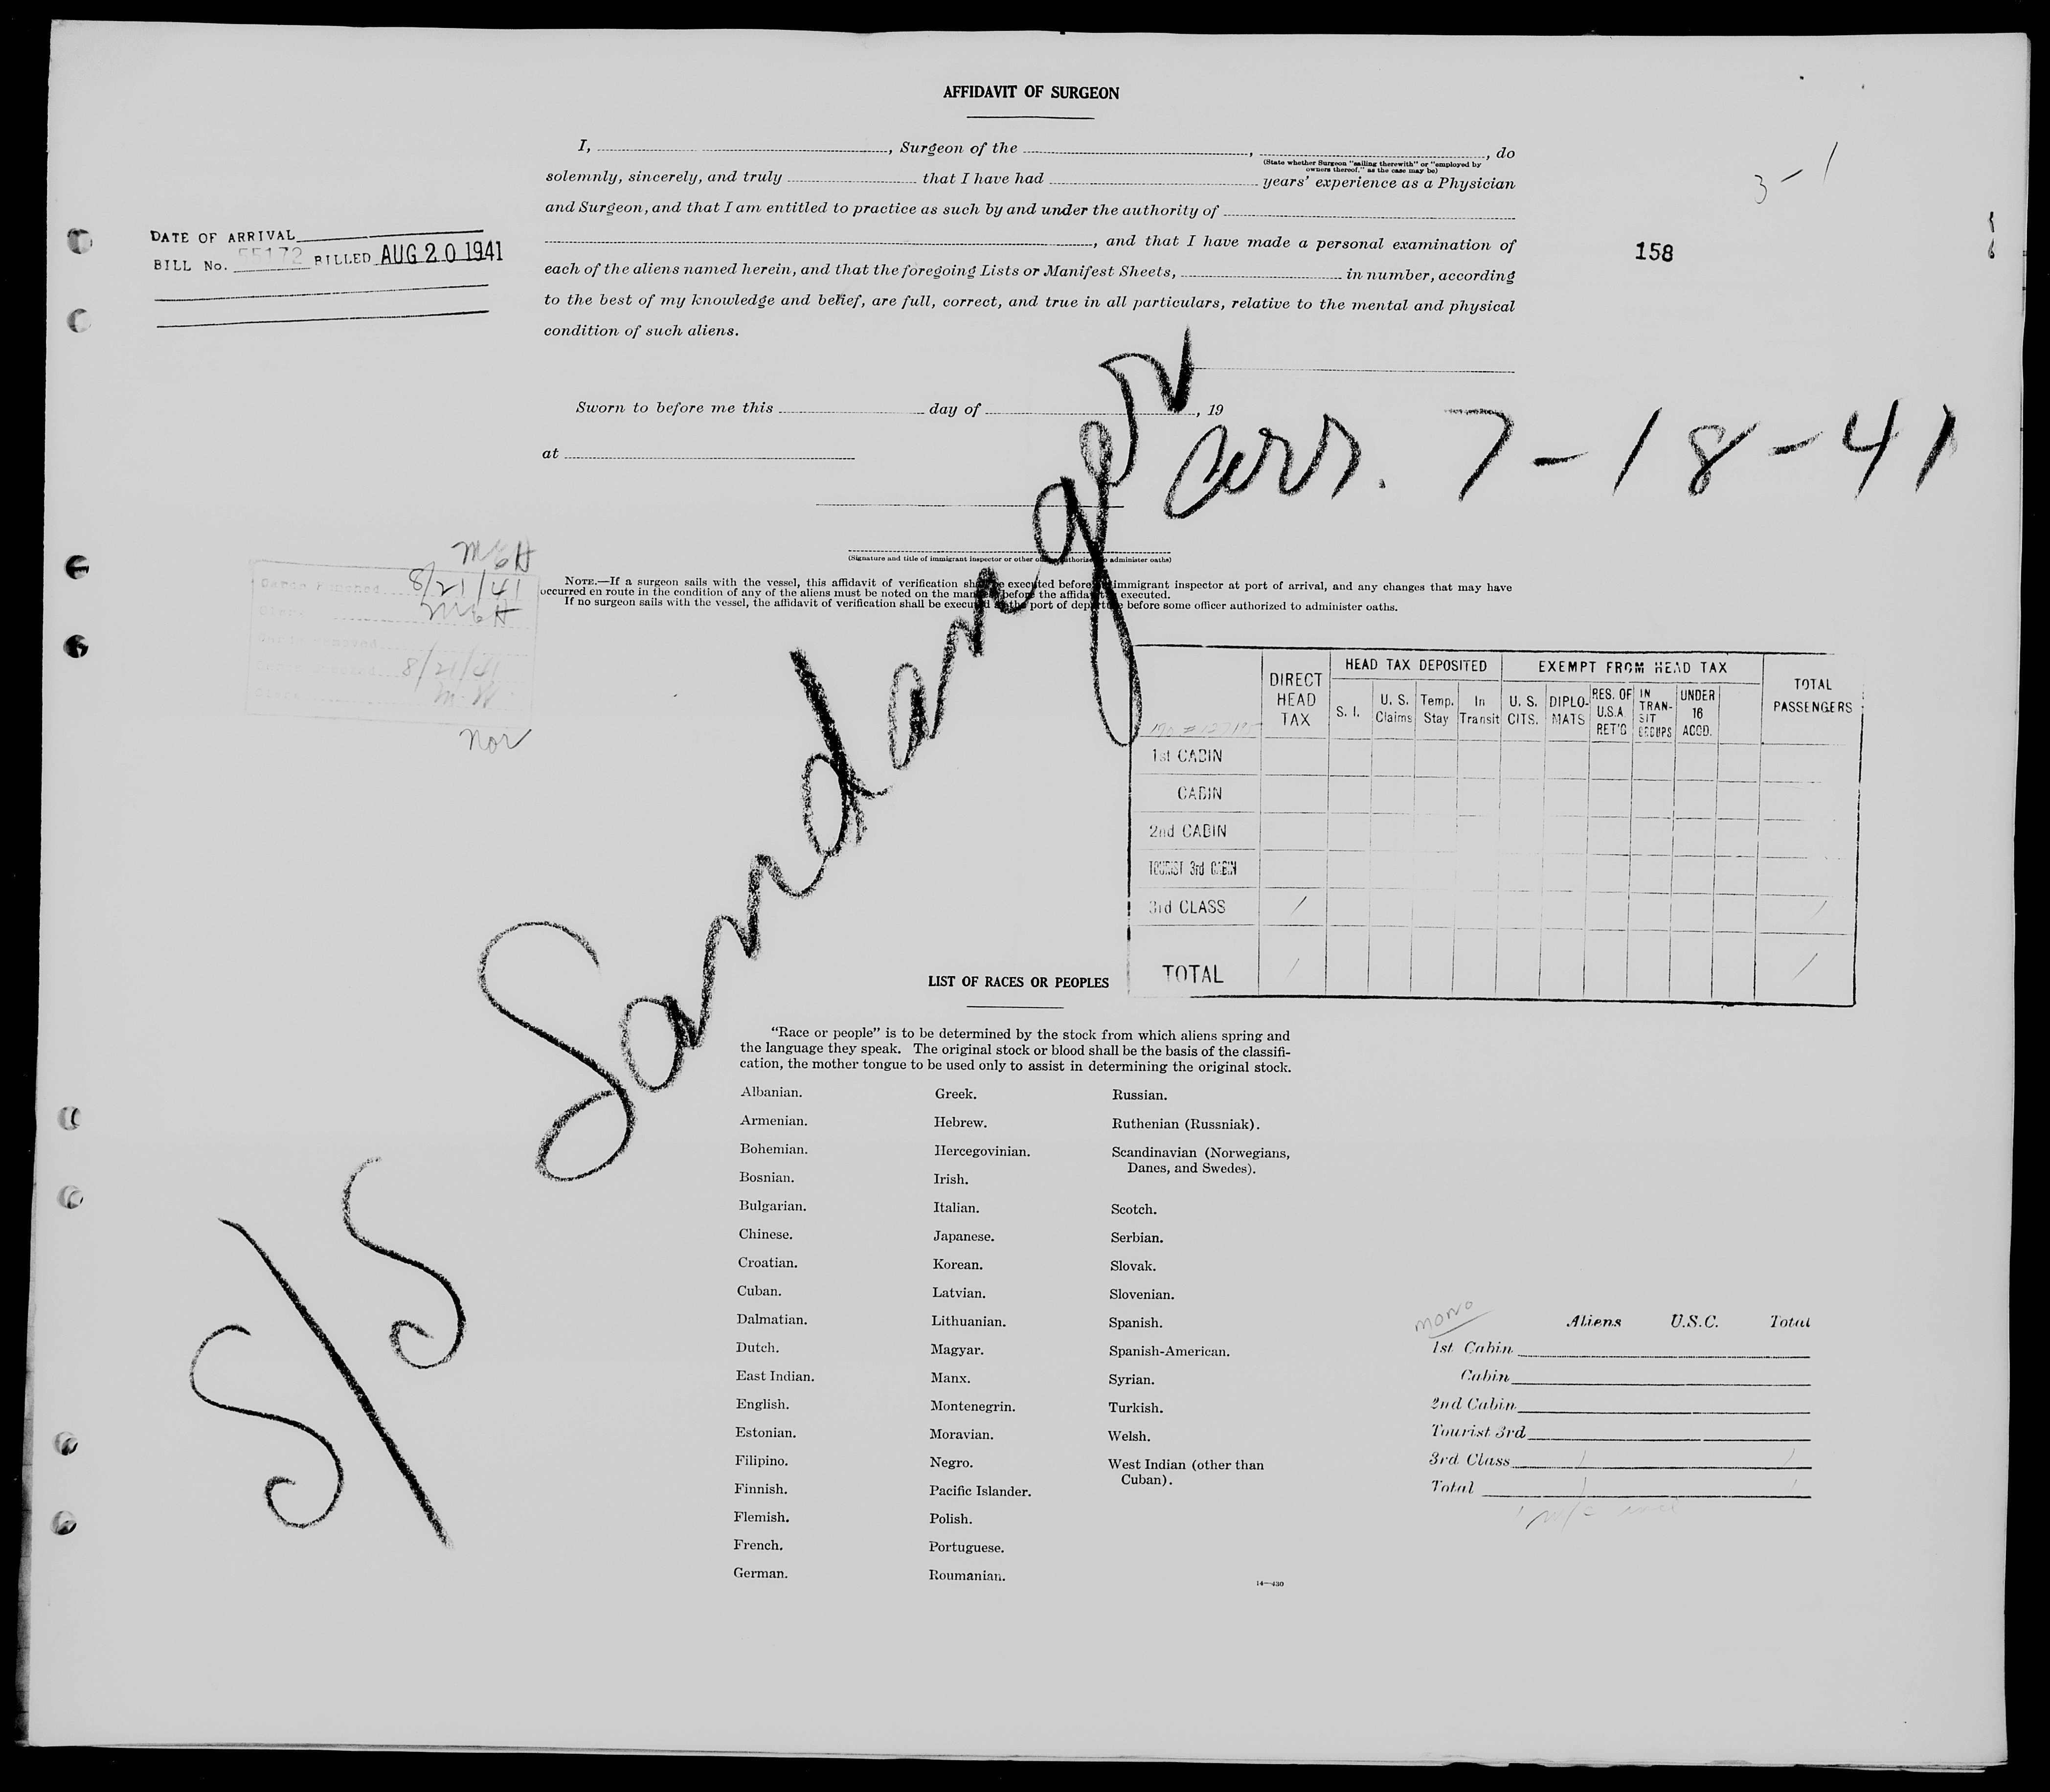 AFFIDAVIT OF SURGEON
I, , Surgeon of the , , do
(State whether Surgeon "sailing therewith" or "employed by
owners thereof," as the case may be)
solemnly, sincerely, and truly that I have had years' experience as a Physician
and Surgeon, and that I am entitled to practice as such by and under the authority of
, and that I have made a personal examination of
each of the aliens named herein, and that the foregoing Lists or Manifest Sheets, in number, according
to the best of my knowledge and belief, are full, correct, and true in all particulars, relative to the mental and physical
condition of such aliens.
3-1
158
DATE OF ARRIVAL
BILL No. 55172 BILLED AUG 20 1941
Sworn to before me this day of , 19
at
arr. 7-18-41
S/S Sandanger
(Signature and title of immigrant inspector or other officer authorized to administer oaths)
NOTE.—If a surgeon sails with the vessel, this affidavit of verification shall be executed before immigrant inspector at port of arrival, and any changes that may have
occurred en route in the condition of any of the aliens must be noted on the manifest before the affidavit is executed.
If no surgeon sails with the vessel, the affidavit of verification shall be executed at the port of departure before some officer authorized to administer oaths.
MEH
8/21/41
MEH
8/21/41
Nor
DIRECT HEAD TAX
HEAD TAX DEPOSITED
EXEMPT FROM HEAD TAX
TOTAL PASSENGERS
S. I. U. S. Claims Temp. Stay In Transit U. S. CITS. DIPLO-MATS RES. OF U.S.A RET'G IN TRAN-SIT GROUPS UNDER 16 ACCD.
1st CABIN
CABIN
2nd CABIN
TOURIST 3rd CABIN
3rd CLASS 1 1
TOTAL 1 1
LIST OF RACES OR PEOPLES
"Race or people" is to be determined by the stock from which aliens spring and
the language they speak. The original stock or blood shall be the basis of the classifi-
cation, the mother tongue to be used only to assist in determining the original stock.
Albanian.
Armenian.
Bohemian.
Bosnian.
Bulgarian.
Chinese.
Croatian.
Cuban.
Dalmatian.
Dutch.
East Indian.
English.
Estonian.
Filipino.
Finnish.
Flemish.
French.
German.
Greek.
Hebrew.
Hercegovinian.
Irish.
Italian.
Japanese.
Korean.
Latvian.
Lithuanian.
Magyar.
Manx.
Montenegrin.
Moravian.
Negro.
Pacific Islander.
Polish.
Portuguese.
Roumanian.
Russian.
Ruthenian (Russniak).
Scandinavian (Norwegians,
Danes, and Swedes).
Scotch.
Serbian.
Slovak.
Slovenian.
Spanish.
Spanish-American.
Syrian.
Turkish.
Welsh.
West Indian (other than
Cuban).
14—430
Aliens U.S.C. Total
1st Cabin
Cabin
2nd Cabin
Tourist 3rd
3rd Class 1 1
Total 1 1